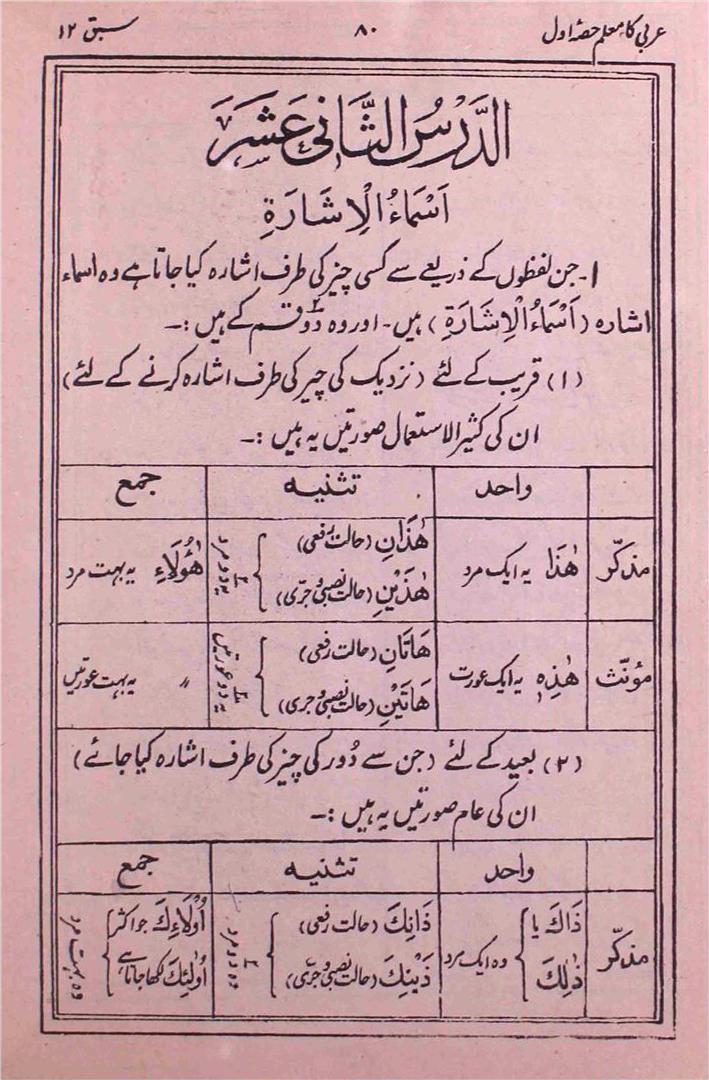 عربی کا معلم حصۂ اول ۸۰ سبق ۱۲
الدَّرْسُ الثَّانِیْ عَشَرَ
اَسْمَاءُ الْاِشَارَةِ
۱۔ جن لفظوں کے ذریعے سے کسی چیز کی طرف اشارہ کیا جاتا ہے وہ اسماء
اشارہ (اَسْمَاءُ الْاِشَارَةِ) ہیں۔ اور وہ دو قسم کے ہیں :۔
(۱) قریب کے لئے (نزدیک کی چیز کی طرف اشارہ کرنے کے لئے)
ان کی کثیر الاستعمال صورتیں یہ ہیں :۔
واحد تثنیہ جمع
مذکّر هٰذَا یہ ایک مرد هٰذَانِ (حالت رفعی) هٰذَيْنِ (حالت نصبی و جرّی) یہ دو مرد هٰؤُلَاءِ یہ بہت مرد
مؤنّث هٰذِهٖ یہ ایک عورت هَاتَانِ (حالت رفعی) هَاتَيْنِ (حالت نصبی و جری) یہ دو عورتیں 〃 یہ بہت عورتیں
(۲) بعید کے لئے (جن سے دُور کی چیز کی طرف اشارہ کیا جائے)
ان کی عام صورتیں یہ ہیں :۔
واحد تثنیہ جمع
مذکّر ذَاكَ یا ذٰلِكَ وہ ایک مرد ذَانِكَ (حالت رفعی) ذَيْنِكَ (حالت نصبی و جرّی) وہ دو مرد اُوْلَاءِكَ جو اکثر اُولٰئِكَ لکھا جاتا ہے وہ بہت مرد